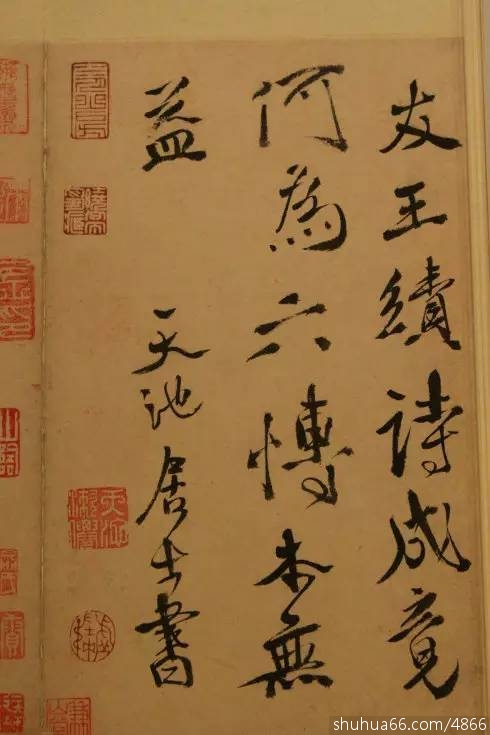 友王績詩成竟
何為六博本無
益
天池居士書
shuhua66.com/4866